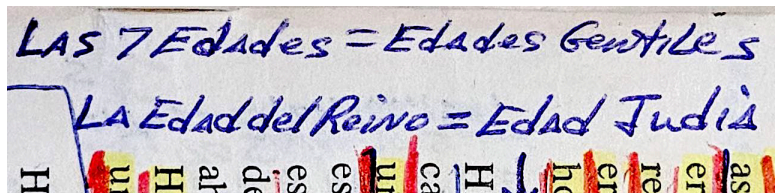 LAS 7 Edades = Edades Gentiles
LA Edad del Reino = Edad Judia